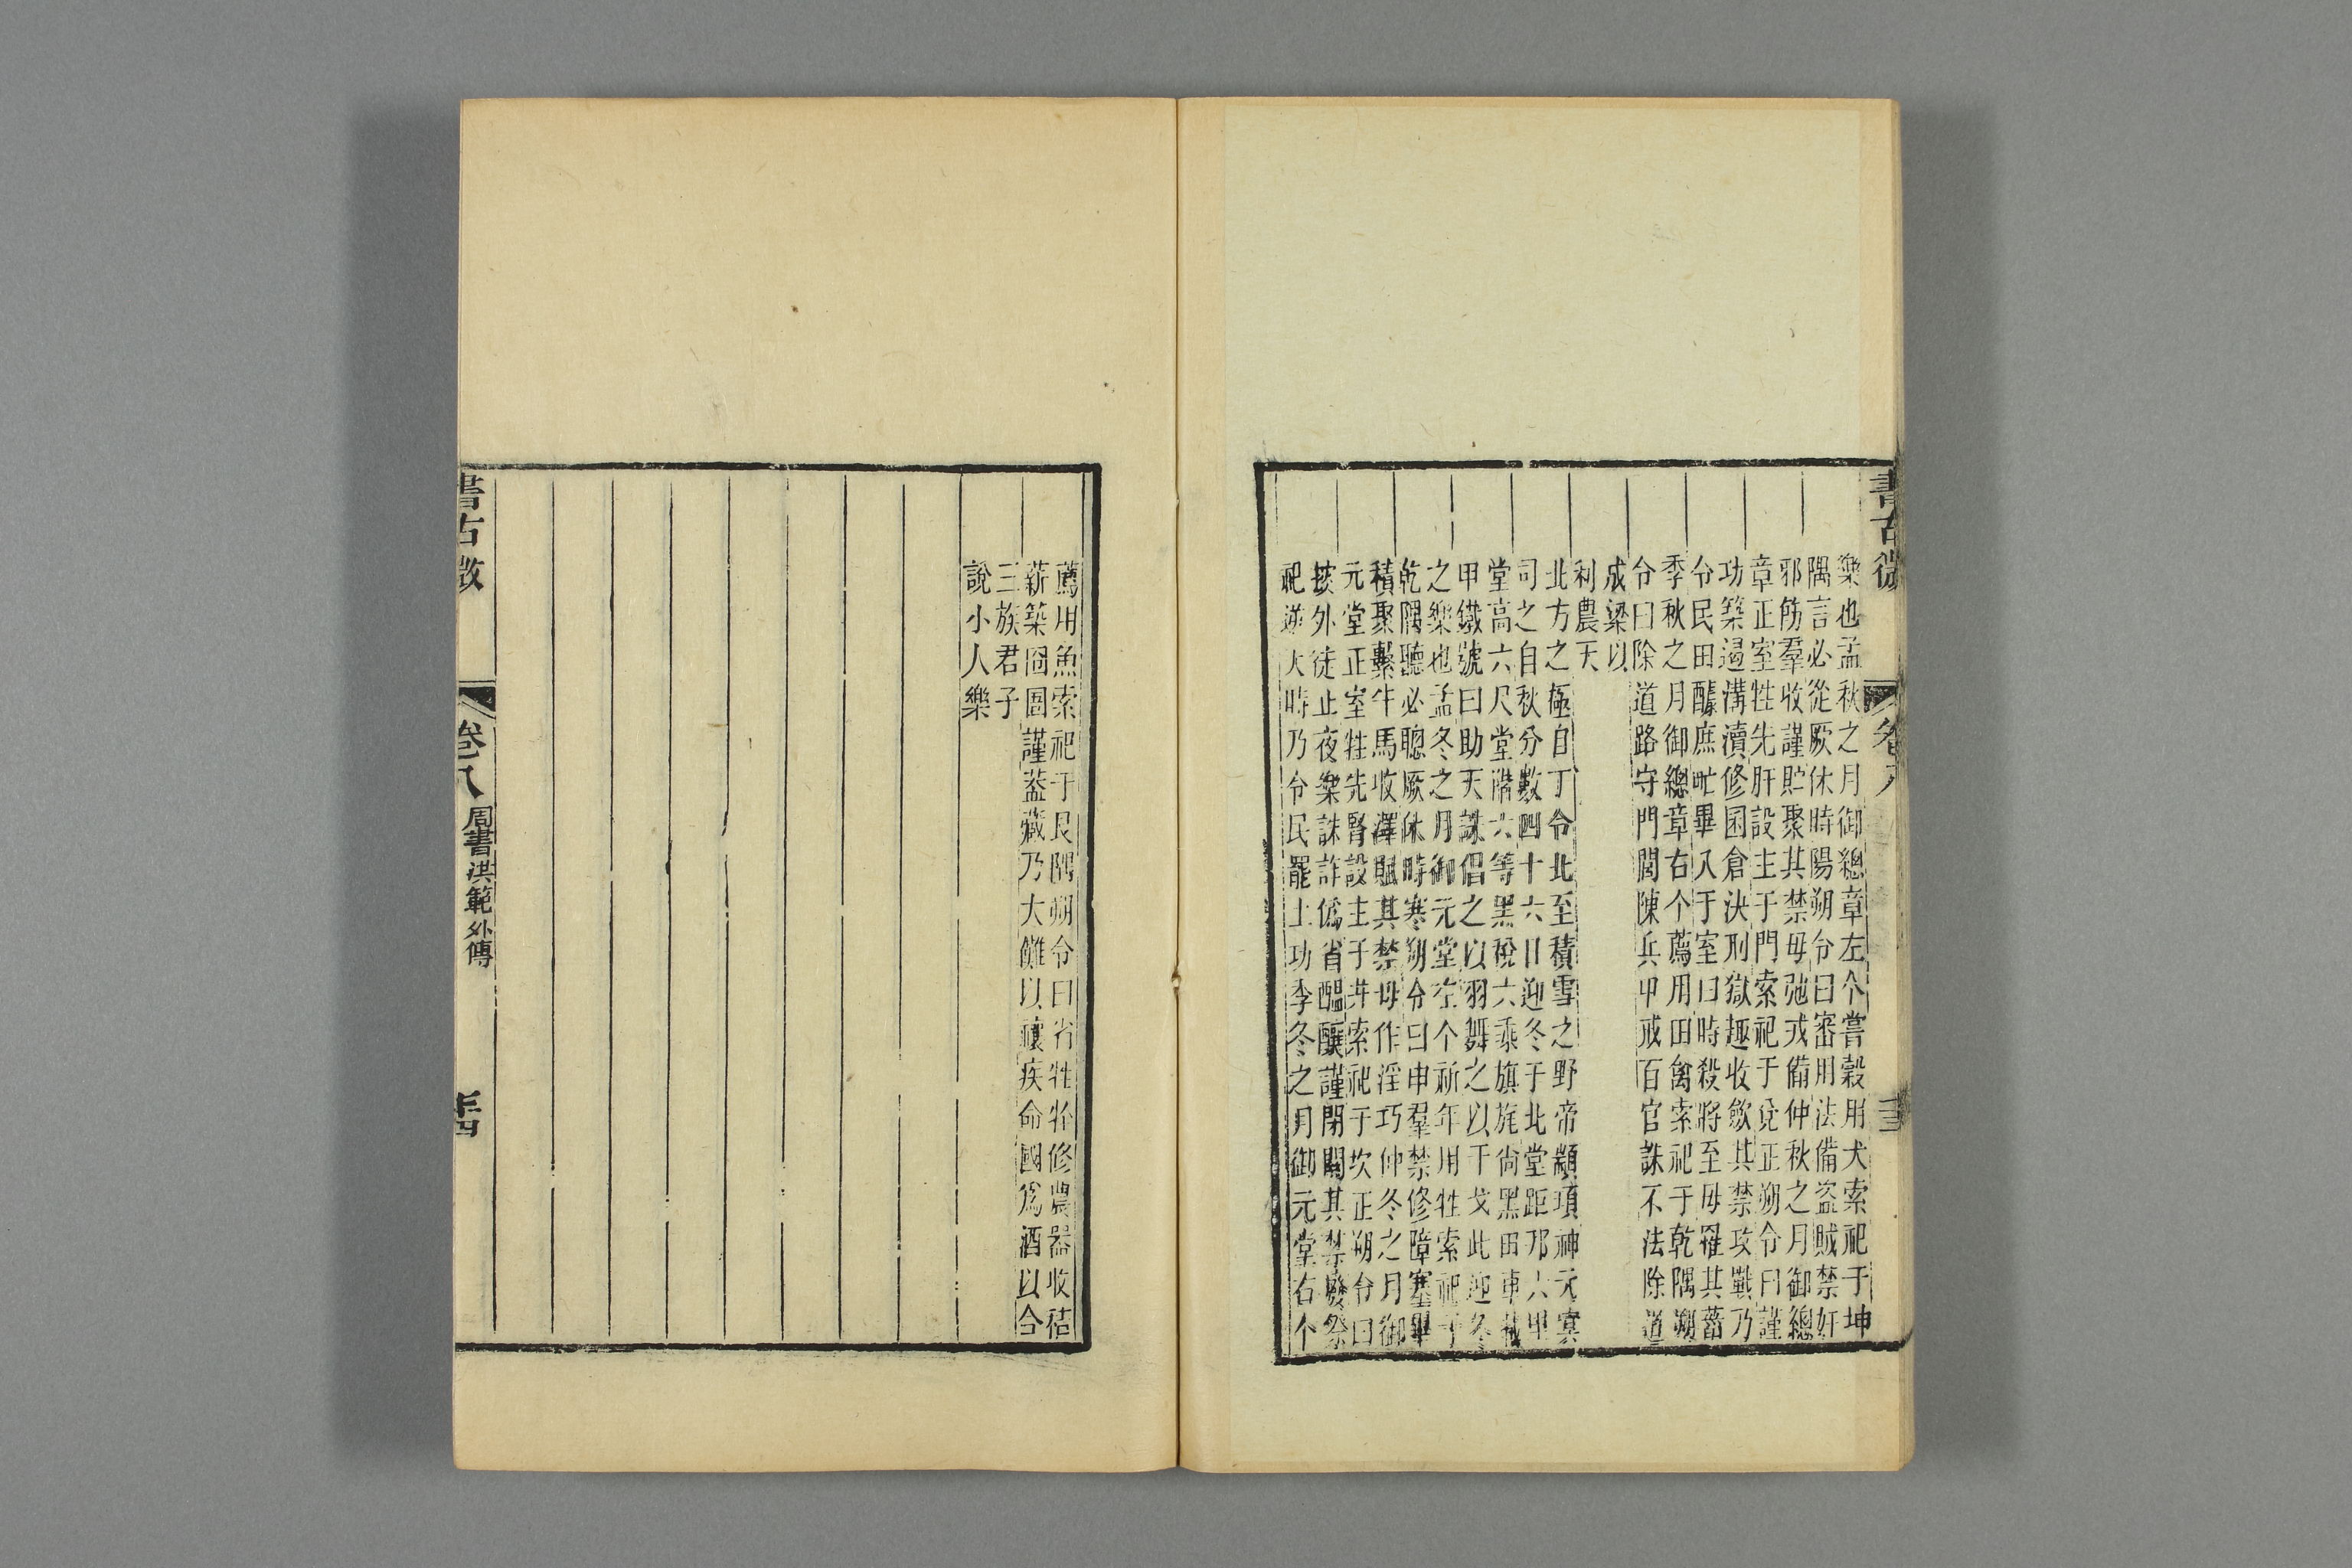 樂也孟秋之月御總章左个嘗穀用犬索祀于坤
隅言必從厥休時陽朔令曰審用法備盜賊禁奸
邪飭羣收謹貯聚其禁毋弛戎備仲秋之月御總
章正室牲先肝設主于門索祀于兌正朔令曰謹
功築遏溝瀆修囷倉決刑獄趣收斂其禁攻戰乃
令民田醵庶甿畢入于室曰時殺將至毋罹其菑
季秋之月御總章右个薦用田禽索祀于乾隅朔
令曰除道路守門閭陳兵甲戒百官誅不法除道
成梁以
利農天
北方之極自丁令北至積雪之野帝顓頊神元冥
司之自秋分數四十六日迎冬于北堂距邦六里
堂高六尺堂階六等黑稅六乘旗旄尚黑田車載
甲鐵號曰助天誅倡之以羽舞之以干戈此迎冬
之樂也孟冬之月御元堂左个祈年用牲索祀于
乾隅聽必聰厥休時寒朔令曰申羣禁修障塞畢
積聚繫牛馬收澤賦其禁毋作淫巧仲冬之月御
元堂正室牲先腎設主于井索祀于坎正朔令曰
搜外徒止夜樂誅詐偽省醞釀謹閉關其禁廢祭
祀逆大時乃令民罷土功季冬之月御元堂右个
書古微
卷八
薦用魚索祀于艮隅朔令曰省牲牷修農器收秸
薪築囹圄謹蓋藏乃大儺以禳疾命國爲酒以合
三族君子
說小人樂
書古微
卷八
周書洪範外傳